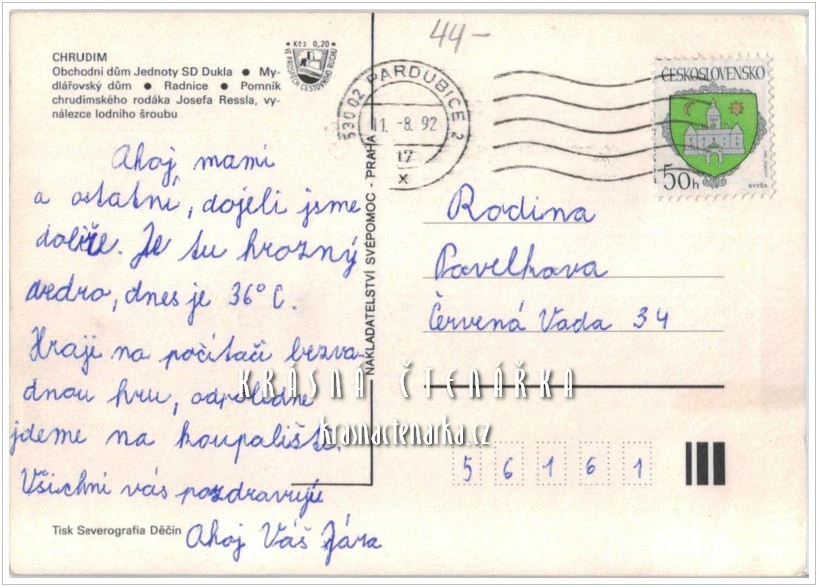 44-
CHRUDIM
Obchodní dům Jednoty SD Dukla ● My-
dlářovský dům ● Radnice ● Pomník
chrudimského rodáka Josefa Ressla, vy-
nálezce lodního šroubu
Kčs 0,20
VE PROSPĚCH CESTOVNÍHO RUCHU
530 02 PARDUBICE 2
11. -8. 92
17
x
ČESKOSLOVENSKO
50h
Ahoj mami
a ostatní, dojeli jsme
dobře. Je tu hrozný
vedro, dnes je 36°C.
Hraji na počítači bezva-
dnou hru, odpoledne
jdeme na koupaliště.
Všichni vás pozdravují
Ahoj Váš Jára
Tisk Severografia Děčín
NAKLADATELSTVÍ SVÉPOMOC - PRAHA
Rodina
Pavelkova
Červená Voda 34
5 6 1 6 1
KRÁSNÁ ČTENÁŘKA
krasnactenarka.cz